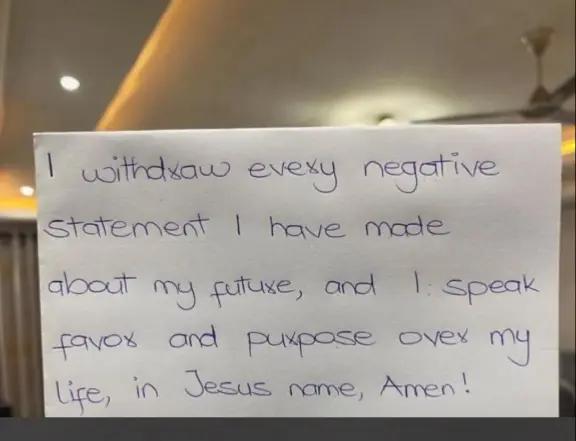 I withdraw every negative
statement I have made
about my future, and I speak
favor and purpose over my
life, in Jesus name, Amen!